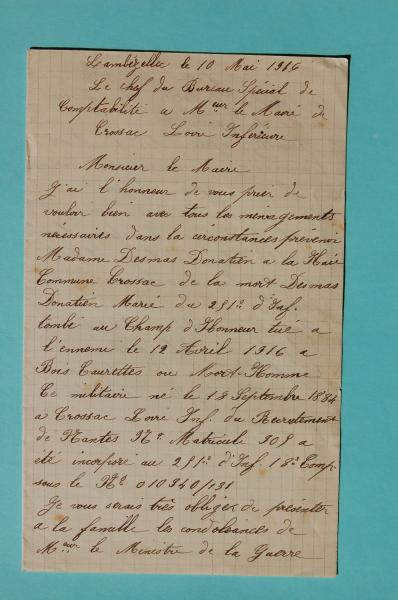 Lambézellec le 10 Mai 1916
Le chef du Bureau Spécial de
Comptabilité a Meur le Maire de
Crossac Loire Inférieure
Monsieur le Maire
J'ai l'honneur de vous prier de
vouloir bien avec tous les ménagements
nécessaires dans la circonstances prévenir
Madame Desmas Donatien a la Haie
Commune Crossac de la mort Desmas
Donatien Marie du 291e d'Inf.
tombé au Champ d'Honneur tué a
l'ennemi le 12 Avril 1916 a
Bois Caurettes ou Mort-Homme
Ce militaire né le 13 Septembre
a Crossac Loire Inf. du Recrutement
de Nantes No Matricule 309 a
été incorporé au 291e d'Inf 18e Comp.
sous le No 010340/131
Je vous serais très obliger de présenter
a la famille les condoléances de
Meur le Ministre de la Guerre